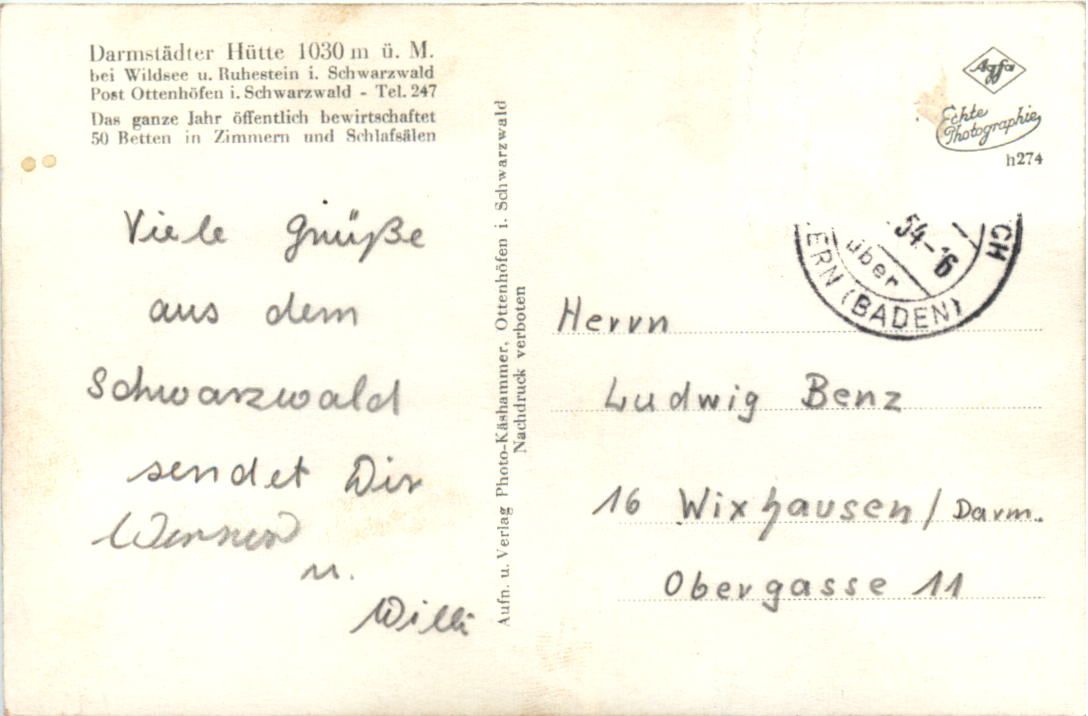 Darmstädter Hütte 1030 m ü. M.
bei Wildsee u. Ruhestein i. Schwarzwald
Post Ottenhöfen i. Schwarzwald - Tel. 247
Das ganze Jahr öffentlich bewirtschaftet
50 Betten in Zimmern und Schlafsälen
Viele Grüße
aus dem
Schwarzwald
sendet Dir
Werner
u.
Willi
Aufn. u. Verlag Photo-Käshammer, Ottenhöfen i. Schwarzwald
Nachdruck verboten
Agfa
Echte
Photographie
h274
54-16
über
ERN (BADEN)
CH
Herrn
Ludwig Benz
16 Wixhausen/Darm.
Obergasse 11